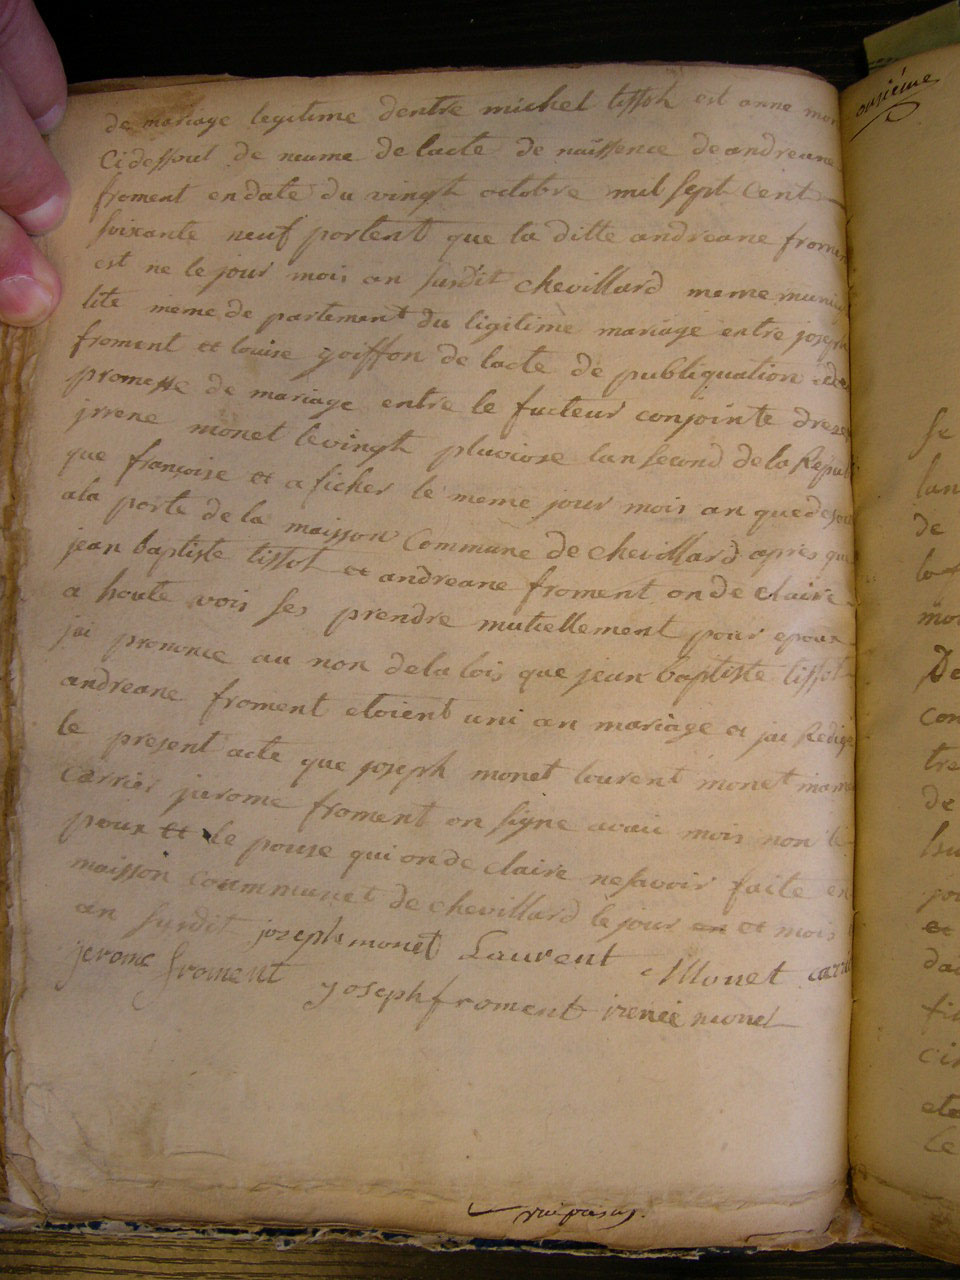 de mariage legitime dentre michel tissot est anne mon
Cidessout de neume de lacte de naissence de andreane
froment en date du vingt octobre mil sept cent
soixante neuf portent que la ditte andreane fromen
est ne le jour mois an surdit chevillard meme munici
lite meme de partement du ligitime mariage entre joseph
froment et louise goiffon de lacte de publiquation de
promesse de mariage entre le futeur conjointe dresse
jrrene monet le vingt pluviose lan second de la Repu
que françoise et aficher le meme jour mois an que desou
a la porte de la maisson Commune de chevillard apres que
jean baptiste tissot et andreane froment on de claire
a haute vois ses prendre mutiellement pour epoux
jai prononce au non de la lois que jean baptiste tissot
andreane froment etoient uni an mariage et jai Redige
le present acte que joseph monet lourent monet
carrier jerome froment on signe avaic mois non le
peoux et le pouse qui on de claire ne savoir faite en
maisson communet de chevillard le jour en et mois
an surdit joseph monet Laurent Monet carri
jerome froment joseph froment irenée monet
onsiéme
se
lan
de
mon
De
con
tre
de
jou
et
dai
cin
ete
Le